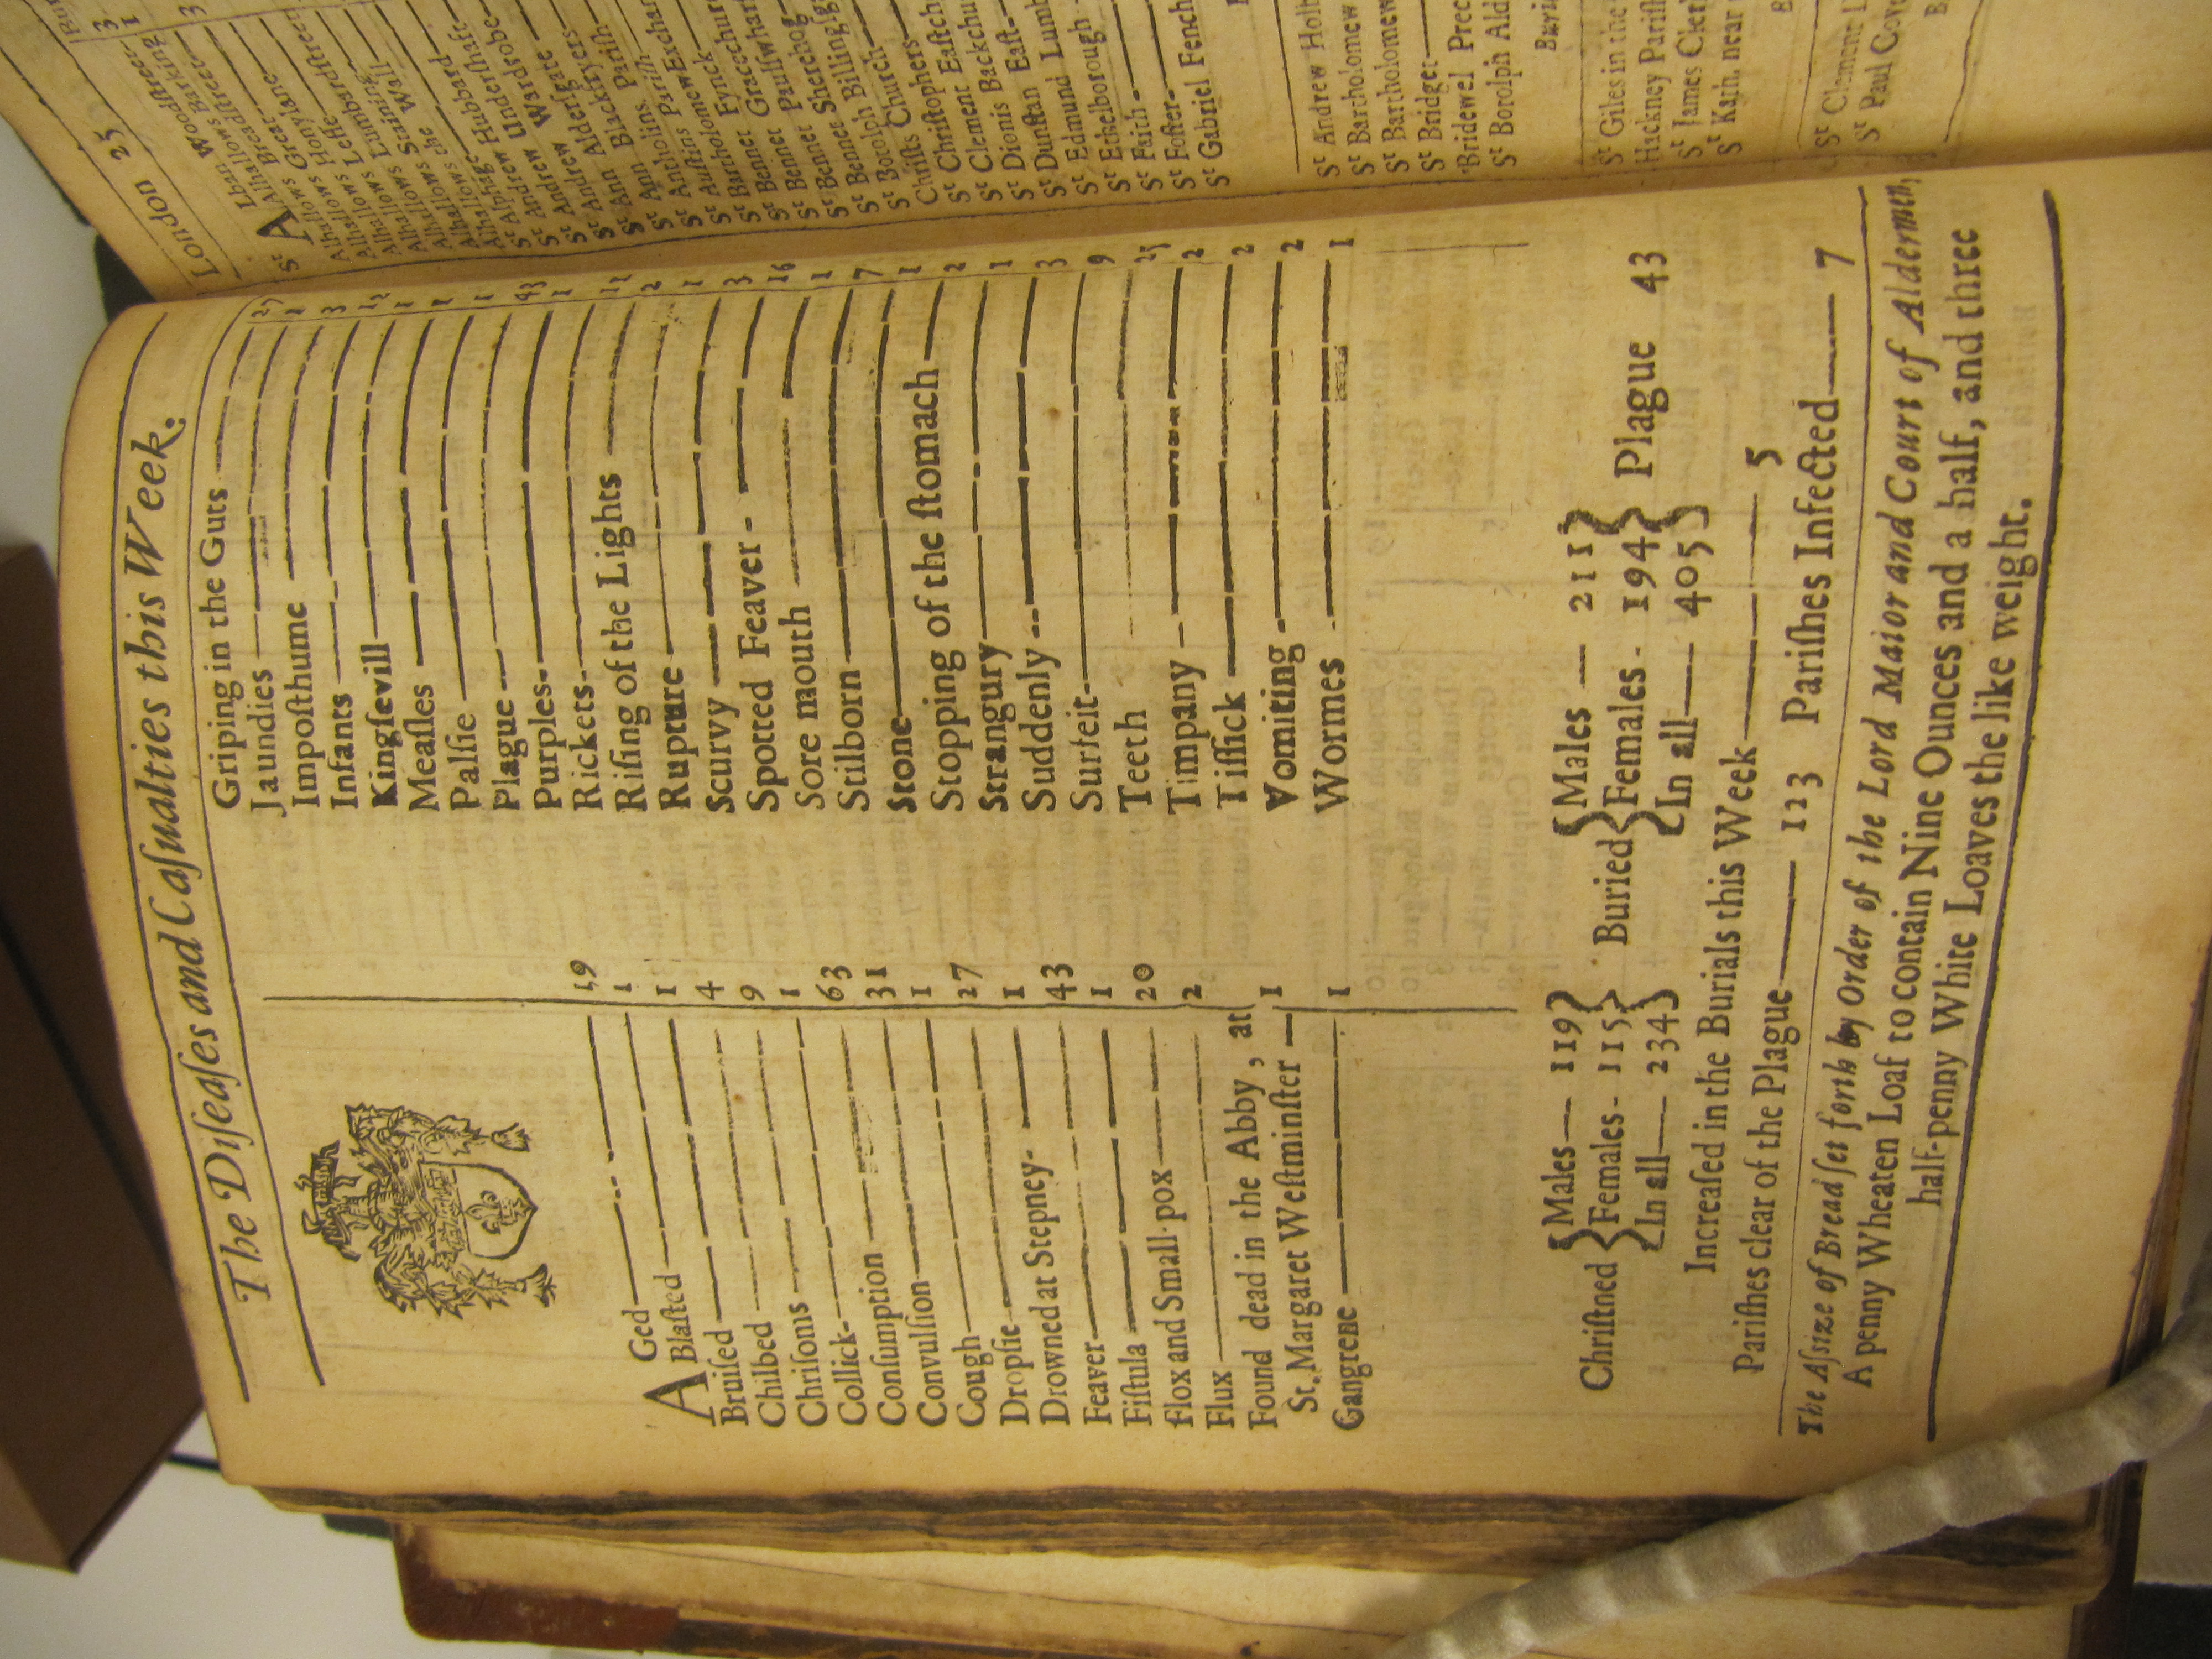 The Diſeaſes and Caſualties this Week.
AGed — 19
Blaſted — 1
Bruiſed — 1
Chilbed — 4
Chriſoms — 9
Collick — 1
Conſumption — 63
Convulſion — 31
Cough — 1
Dropſie — 27
Drowned at Stepney — 1
Feaver — 43
Fiſtula — 1
Flox and Small-pox — 20
Flux — 2
Found dead in the Abby, at
St. Margaret Weſtminſter — 1
Gangrene — 1
Griping in the Guts — 27
Jaundies — 1
Impoſthume — 3
Infants — 12
Kingſevill — 1
Meaſles — 1
Palſie — 1
Plague — 43
Purples — 1
Rickets — 11
Riſing of the Lights — 2
Rupture — 1
Scurvy — 3
Spotted Feaver — 16
Sore mouth — 1
Stilborn — 7
Stone — 1
Stopping of the ſtomach — 2
Strangury — 1
Suddenly — 3
Surfeit — 9
Teeth — 25
Timpany — 2
Tiſſick — 2
Vomiting — 2
Wormes — 1
Chriſtned { Males — 119 } Buried { Males — 211 } Plague 43
{ Females - 115 } { Females - 194 }
{ In all — 234 } { In all — 405 }
Increaſed in the Burials this Week — 5
Pariſhes clear of the Plague — 123 Pariſhes Infected — 7
The Aſsize of Bread ſet forth by Order of the Lord Maior and Court of Aldermen,
A penny Wheaten Loaf to contain Nine Ounces and a half, and three
half-penny White Loaves the like weight.
London 25
St ALbans Woodſtreet
Alhallows Barking
Alhallows Breadſtreet
Alhallows Great
Alhallows Honylane
Alhallows Leſſe
Alhallows Lumbardſtreet
Alhallows Staining
Alhallows the Wall
Alphage
St Andrew Hubbard
St Andrew Underſhaft
St Andrew Wardrobe
St Ann Alderſgate
St Ann Blackfryers
St Antholins Pariſh
St Auſtins Pariſh
St Bennet Fynck
St Bennet Gracechur
St Bennet Paulſwharf
St Bennet Sherehog
St Botolph Billingſg
Chriſts Church
St Chriſtophers
St Clement Eaſtch
St Dionis Backchu
St Dunſtan Eaſt
St Edmund Lumb
St Ethelborough
St Faith
St Foſter
St Gabriel Fench
St Andrew Holb
St Bartholomew
St Bartholomew
St Bridget
Bridewel Prec
St Botolph Ald
Buri
St Giles in the
Hackney Pariſh
St James Cler
St Kath. near
St Clement
St Paul Cove